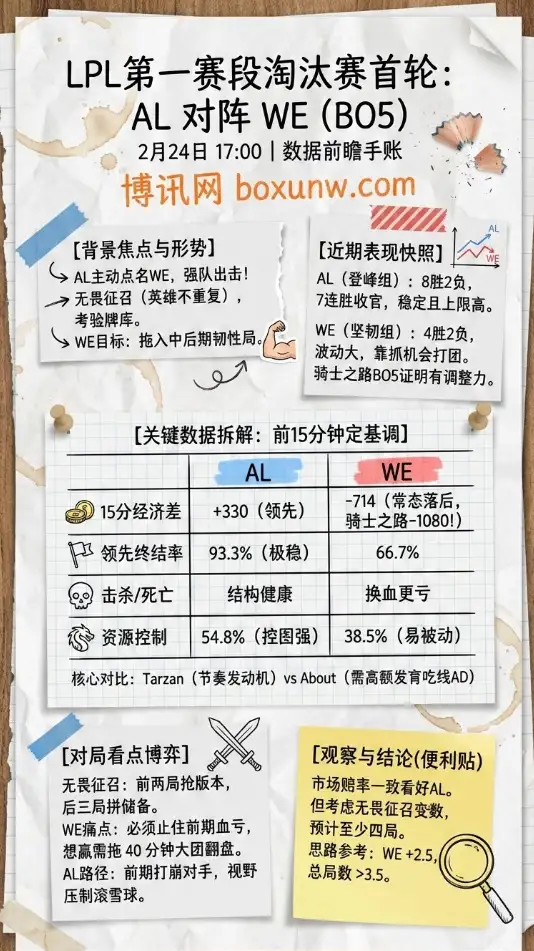 LPL第一赛段淘汰赛首轮：
AL 对阵 WE (BO5)
2月24日 17:00 | 数据前瞻手账
博讯网 boxunw.com
[背景焦点与形势]
AL主动点名WE，强队出击！
无畏征召（英雄不重复），
考验牌库。
WE目标：拖入中后期韧性局。
[近期表现快照]
AL
WE
AL（登峰组）：8胜2负，
7连胜收官，稳定且上限高。
WE（坚韧组）：4胜2负，
波动大，靠抓机会打团。
骑士之路BO5证明有调整力。
[关键数据拆解：前15分钟定基调]
AL WE
15分经济差 +330（领先） -714（常态落后，
骑士之路-1080!）
领先终结率 93.3%（极稳） 66.7%
击杀/死亡 结构健康 换血更亏
资源控制 54.8%（控图强） 38.5%（易被动）
核心对比：Tarzan（节奏发动机）vs About（需高额发育吃线AD）
[对局看点博弈]
无畏征召：前两局抢版本，
后三局拼储备。
WE痛点：必须止住前期血亏，
想赢需拖 40 分钟大团翻盘。
AL路径：前期打崩对手，视野
压制滚雪球。
[观察与结论(便利贴)
市场赔率一致看好AL。
但考虑无畏征召变数，
预计至少四局。
思路参考：WE +2.5，
总局数 >3.5。